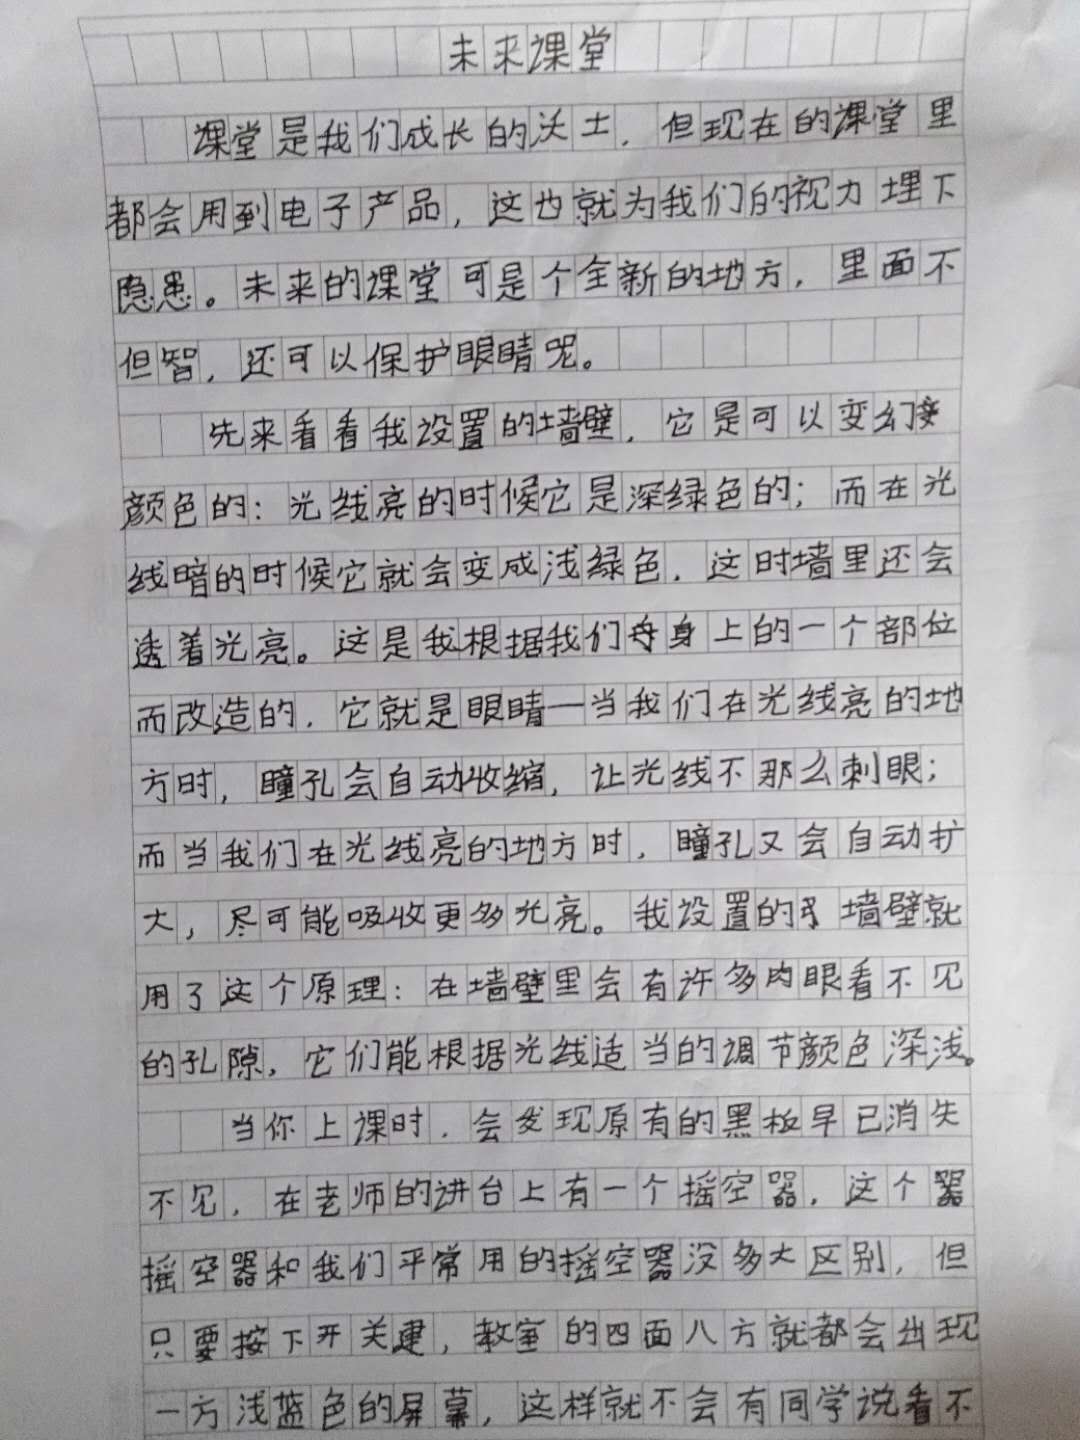 未来课堂
课堂是我们成长的沃土，但现在的课堂里
都会用到电子产品，这也就为我们的视力埋下
隐患。未来的课堂可是个全新的地方，里面不
但智，还可以保护眼睛呢。
先来看看我设置的墙壁，它是可以变幻
颜色的：光线亮的时候它是深绿色的；而在光
线暗的时候它就会变成浅绿色，这时墙里还会
透着光亮。这是我根据我们身上的一个部位
而改造的，它就是眼睛—当我们在光线亮的地
方时，瞳孔会自动收缩，让光线不那么刺眼；
而当我们在光线亮的地方时，瞳孔又会自动扩
大，尽可能吸收更多光亮。我设置的墙壁就
用了这个原理：在墙壁里会有许多肉眼看不见
的孔隙，它们能根据光线适当的调节颜色深浅。
当你上课时，会发现原有的黑板早已消失
不见，在老师的讲台上有一个摇空器，这个
摇空器和我们平常用的摇空器没多大区别，但
只要按下开关建，教室的四面八方就都会出现
一方浅蓝色的屏幕，这样就不会有同学说看不